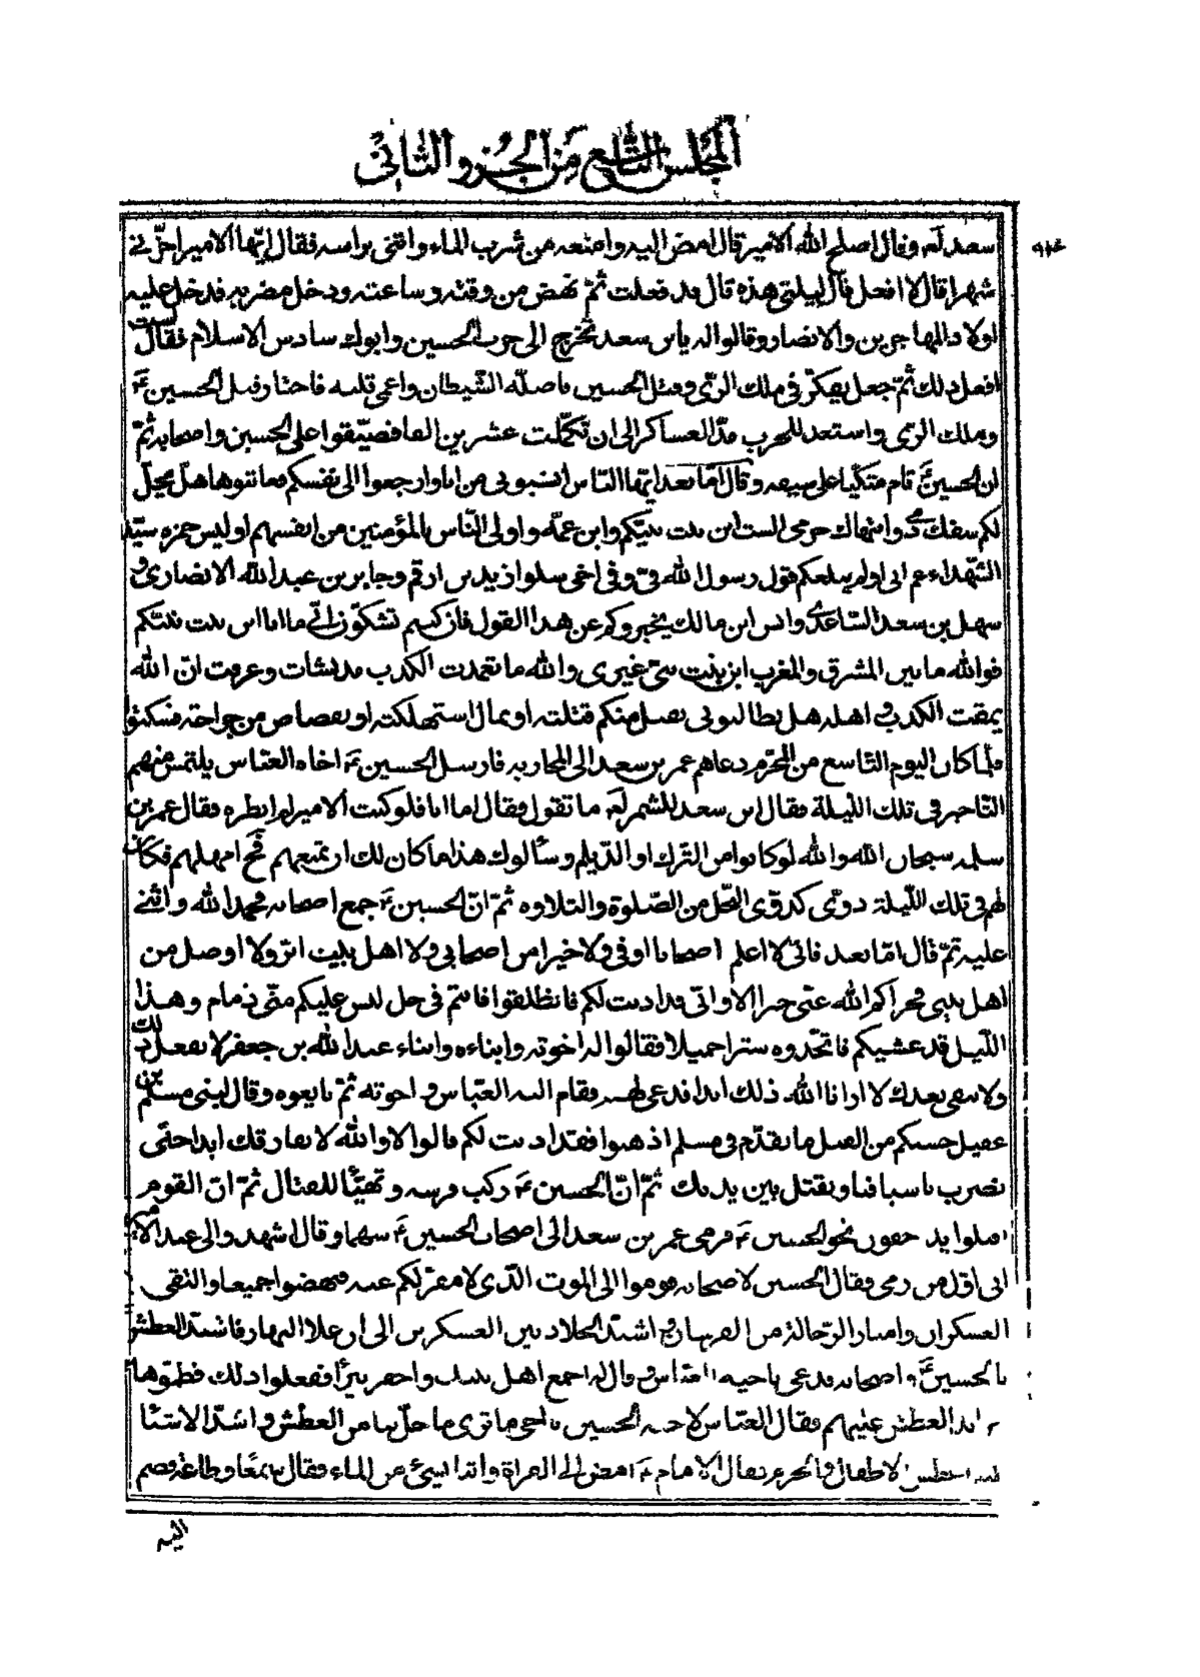 المجلس التاسع من الجزو الثاني
سعد لع وقال اصلح الله الامير قال امض اليه وامنعه من شرب الماء واتنى براسه فقال ايها الامير اخرنى
شهرا قال لا افعل قال ليلتى هذه قال قد فعلت ثم نهض من وقته وساعته ودخل مضربه فدخل عليه
اولاد المهاجرين والانصار وقالوا له يابن سعد تخرج الى حرب الحسين وابوك سادس الاسلام فقال لست
افعل ذلك ثم جعل يفكر فى ملك الرى وقتل الحسين فاضله الشيطان واعمى قلبه فاختار قتل الحسين ع
وملك الرى واستعد للحرب مدّ العساكر الى ان تكملت عشرين الفا فضيقوا على الحسين واصحابه ثم
ان الحسين ع قام متكيا على سيفه وقال اما بعد ايها الناس انسبونى من انا وارجعوا الى نفسكم فعاتبوها هل يحل
لكم سفك دمى وانتهاك حرمى الست ابن بنت نبيكم وابن عمه واولى الناس بالمؤمنين من انفسهم اوليس حمزه سيد
الشهداء عم ابى اولم يبلغكم قول رسول الله فىّ وفى اخى سلوا زيد بن ارقم وجابر بن عبد الله الانصارى و
سهل بن سعد الساعدى وانس ابن مالك يخبروكم عن هذا القول فان كنتم تشكون انى ما انا ابن بنت نبيكم
فوالله ما بين المشرق والمغرب ابن بنت نبى غيرى والله ما تعمدت الكذب مذ نشات وعرفت ان الله
يمقت الكذب و اهله هل يطالبونى بقتل منكم قتلته او بمال استهلكته او بقصاص من جراحته فسكتوا
فلما كان اليوم التاسع من المحرم دعاهم عمر بن سعد الى المحاربه فارسل الحسين ع اخاه العباس يلتمس منهم
التاخير فى تلك الليلة فقال ابن سعد للشمر لع ما تقول فقال اما انا فلو كنت الامير لم انظره فقال عمر بن
سلمه سبحان الله والله لو كانوا من الترك او الديلم وسألوك هذا ما كان لك ان تمنعهم فح امهلهم فكان
لهم فى تلك الليلة دوى كدوى النحل من الصلوة والتلاوه ثم ان الحسين ع جمع اصحابه فحمد الله واثنى
عليه ثم قال اما بعد فانى لا اعلم اصحابا اوفى ولا خيرا من اصحابى ولا اهل بيت ابرّ ولا اوصل من
اهل بيتى فجزاكم الله عنى خيرا الا وانى قد اذنت لكم فانطلقوا فانتم فى حل ليس عليكم منى ذمام وهذا
الليل قد غشيكم فاتخذوه سترا جميلا فقالوا له اخوته وابناءه وابناء عبد الله بن جعفر لا نفعل ذلك
ولا نبقى بعدك لا ارانا الله ذلك ابدا فدعى لهم فقام اليه العباس و اخوته ثم بايعوه وقال لبنى مسلم بن
عقيل حسبكم من القتل ما تقدم فى مسلم اذهبوا فقد اذنت لكم قالوا لا والله لا نفارقك ابدا حتى
نضرب باسيافنا ونقتل بين يديك ثم ان الحسين ع ركب فرسه وتهيّأ للقتال ثم ان القوم
اقبلوا يدحفون نحو الحسين ع فرمى عمر بن سعد الى اصحاب الحسين ع سهما وقال اشهدوا لى عند الامير
انى اول من رمى فقال الحسين لاصحابه قوموا الى الموت الذى لا مفر لكم عنه فنهضوا جميعا والتقى
العسكران وامتاز الرجالة من الفرسان و اشتد الجلاد بين العسكرين الى ان علا النهار فاشتد العطش
بالحسين ع و اصحابه فدعى باخيه العباس و قال له اجمع اهل بيتك واحفر بئرا ففعلوا ذلك فطموها
العطش عليهم فقال العباس لاخيه الحسين يا اخى ما ترى ما حل بنا من العطش و اشد الاشياء
الاطفال و الحرم فقال الامام ع امض الى الفراة واتنا بشئ من الماء فقال سمعا وطاعة فضم
اليه